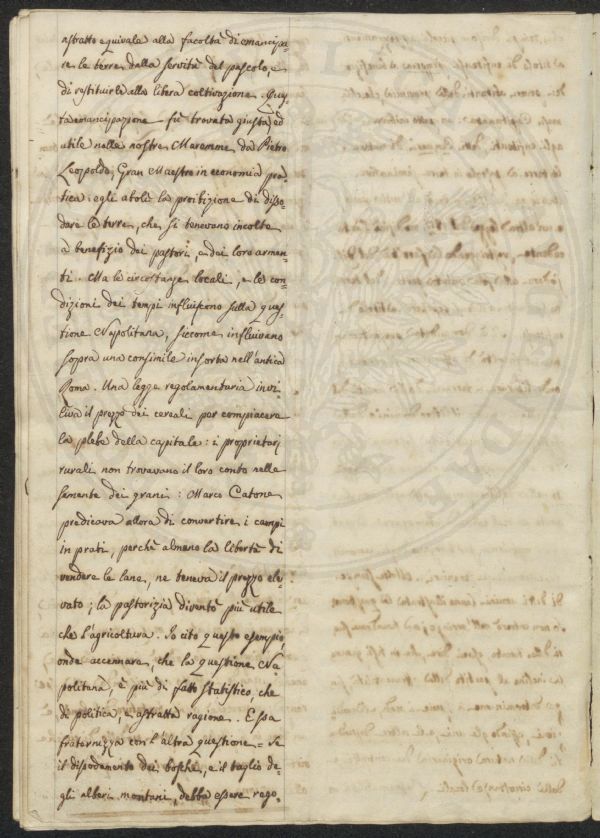 astratto equivale alla facoltà di emancipa-
re le terre dalla servitù del pascolo, e
di restituirle alla libera coltivazione. Ques-
ta emancipazione fù trovata giusta, ed
utile nelle nostre Maremme da Pietro
Leopoldo, Gran Maestro in economia pra-
tica: egli abolì la proibizione di disso-
dare le terre, che si tenevano incolte
a benefizio dei pastori, e dei loro armen-
ti. Ma le circostanze locali, e le con-
dizioni dei tempi influiscono sulla ques-
tione Napolitana, siccome influivano
sopra una consimile insorta nell'antica
Roma. Una legge regolamentaria invi-
liva il prezzo dei cereali per compiacere
la plebe della capitale: i proprietarj
rurali non trovavano il loro conto nelle
semente dei grani: Marco Catone
predicava allora di convertire i campi
in prati, perchè almeno la libertà di
vendere le lane, ne teneva il prezzo ele-
vato; la pastorizia diventò più utile
che l'agricoltura. Io cito questo esempio,
onde accennare, che la questione Na-
politana, è più di fatto statistico, che
di politica, e astratta ragione. Essa
fraternizza con l'altra questione = Se
il dissodamento dei boschi, e il taglio de-
gli alberi montani, debba essere rego-